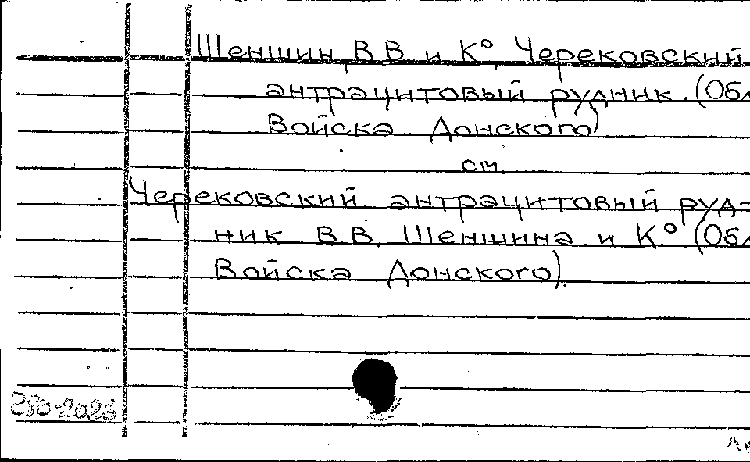 Шеншин, В.В. и К°, Черековский
антрацитовый рудник. (Обл
Войска Донского)
см.
Черековский антрацитовый руд-
ник В.В. Шеншина и К° (Обл
Войска Донского).